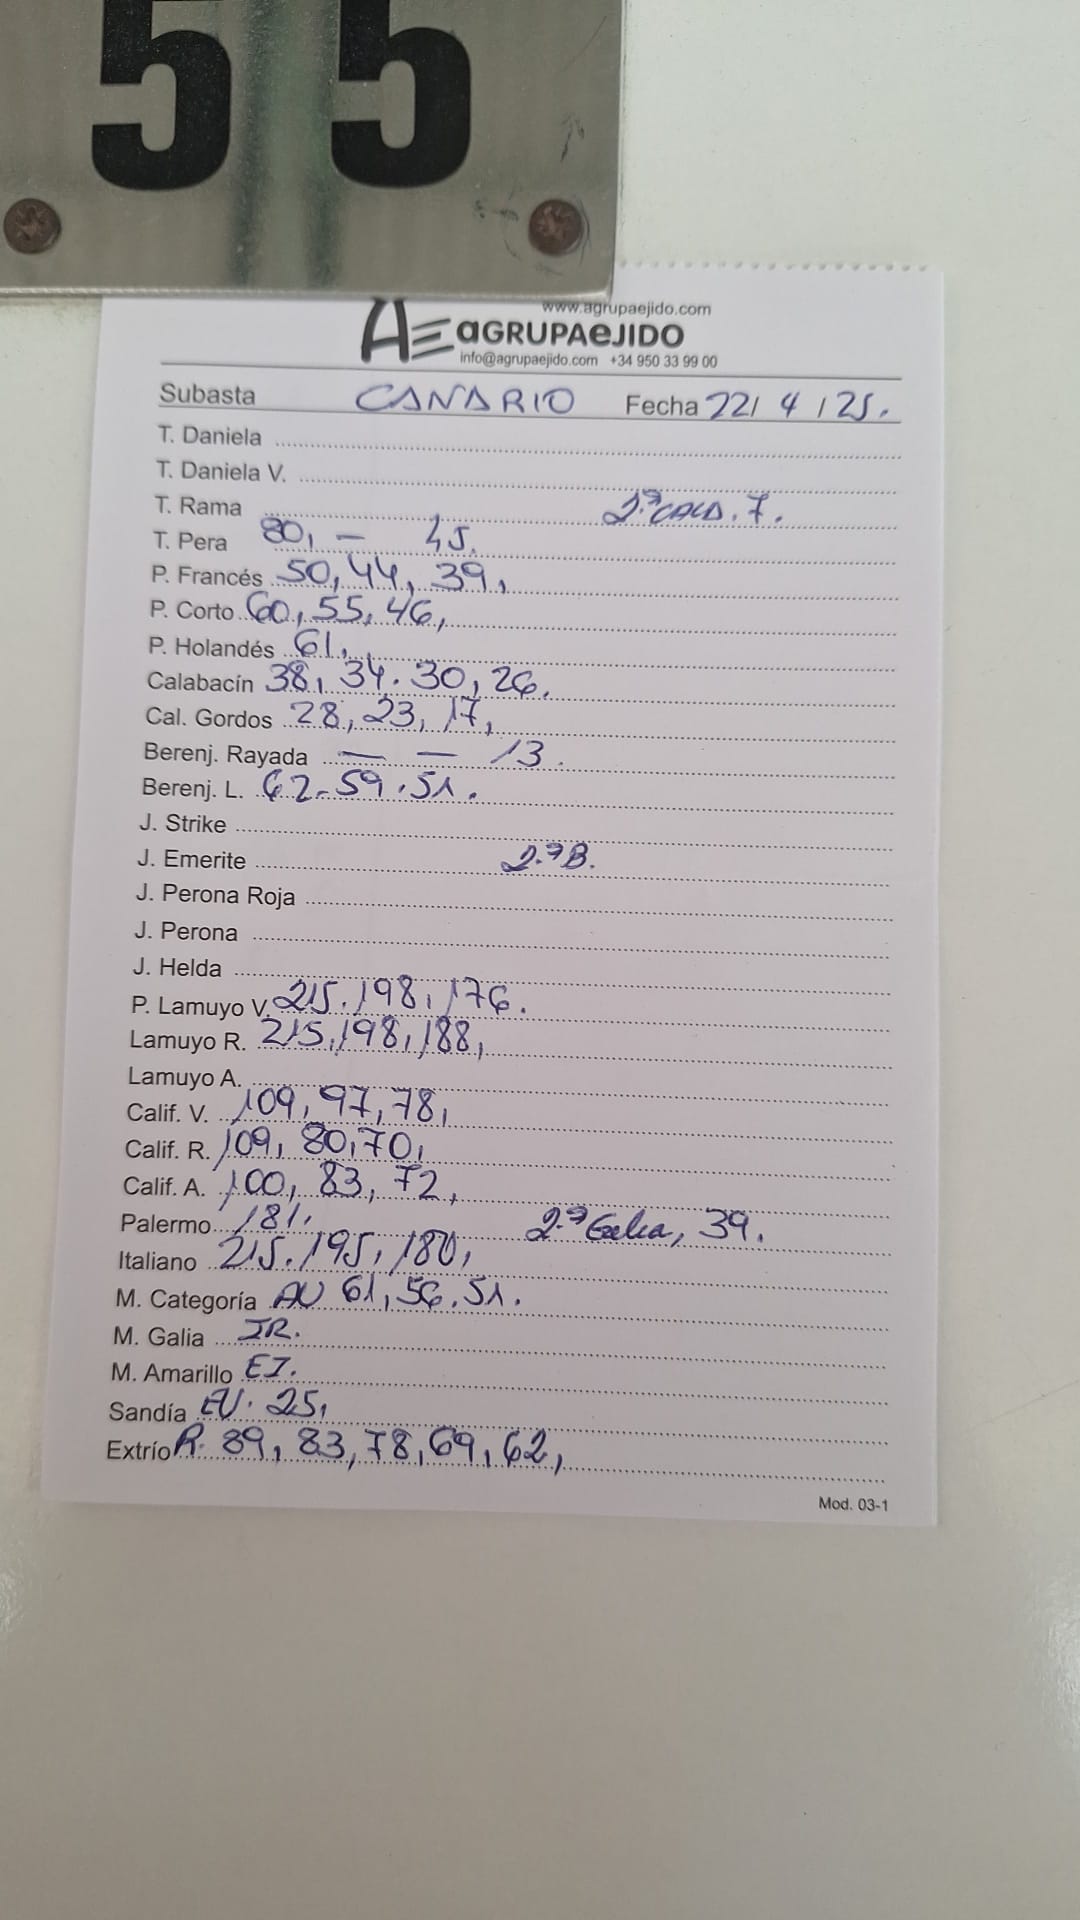 55
www.agrupaejido.com
AE aGRUPAeJIDO
info@agrupaejido.com +34 950 33 99 00
Subasta CANARIO Fecha 22/ 4 / 25.
T. Daniela
T. Daniela V.
T. Rama 2.ª CALD. 7.
T. Pera 80, — 45.
P. Francés 50, 44, 39,
P. Corto 60, 55, 46,
P. Holandés 61,
Calabacín 38, 34. 30, 26.
Cal. Gordos 28, 23, 17,
Berenj. Rayada — — 13.
Berenj. L. 62-59.51.
J. Strike
J. Emerite 2.ª B.
J. Perona Roja
J. Perona
J. Helda
P. Lamuyo V. 215. 198, 176.
Lamuyo R. 215, 198, 188,
Lamuyo A.
Calif. V. 109, 97, 78,
Calif. R. 109, 80, 70,
Calif. A. 100, 83, 72,
Palermo 181. 2.ª Galia, 39.
Italiano 215. 195, 180,
M. Categoría AU 61, 56. 51.
M. Galia JR.
M. Amarillo EJ.
Sandía EU. 25,
Extrío R. 89, 83, 78, 69, 62,
Mod. 03-1